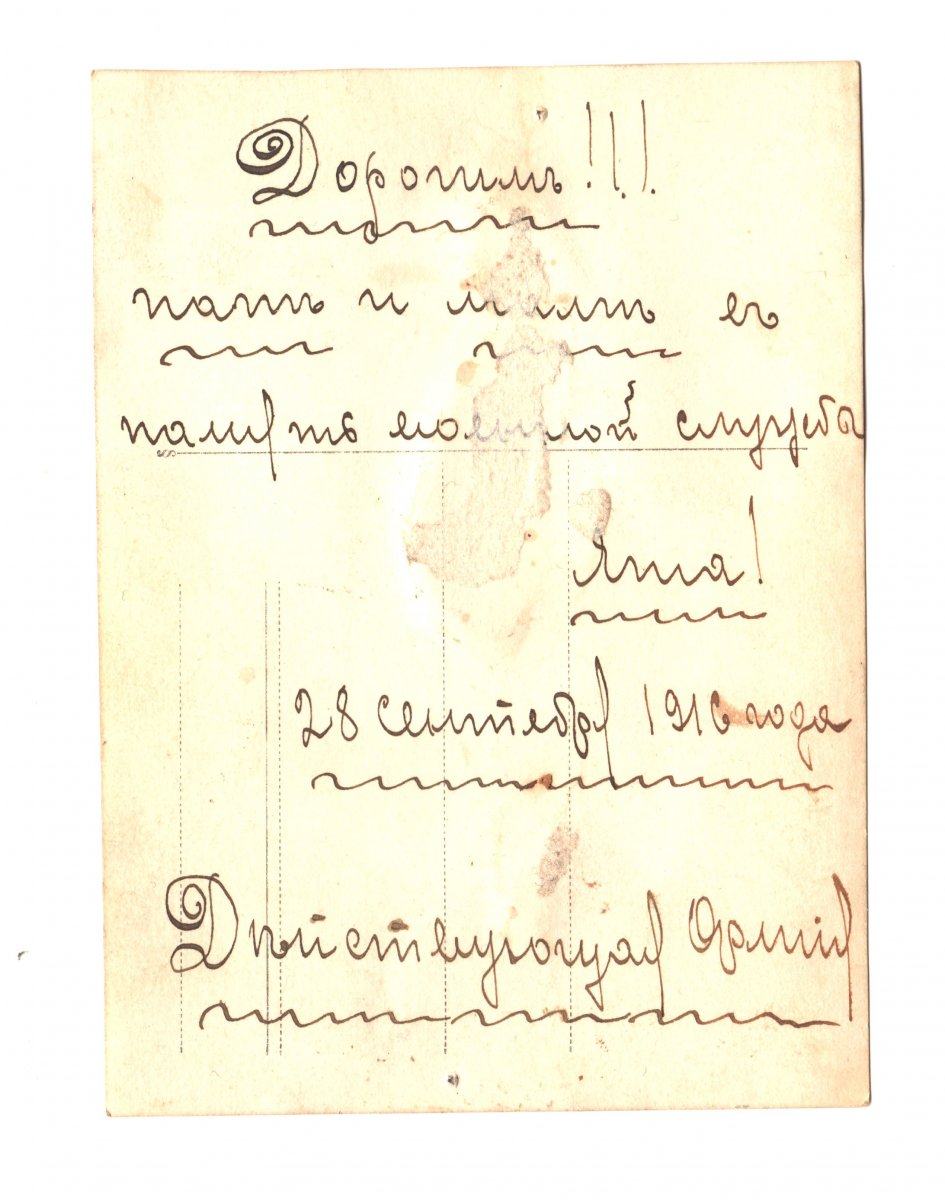 Дорогимъ!!!
папѣ и мамѣ въ
память службы
Яша!
28 сентебря 1916 года
Дѣйствующая Армія